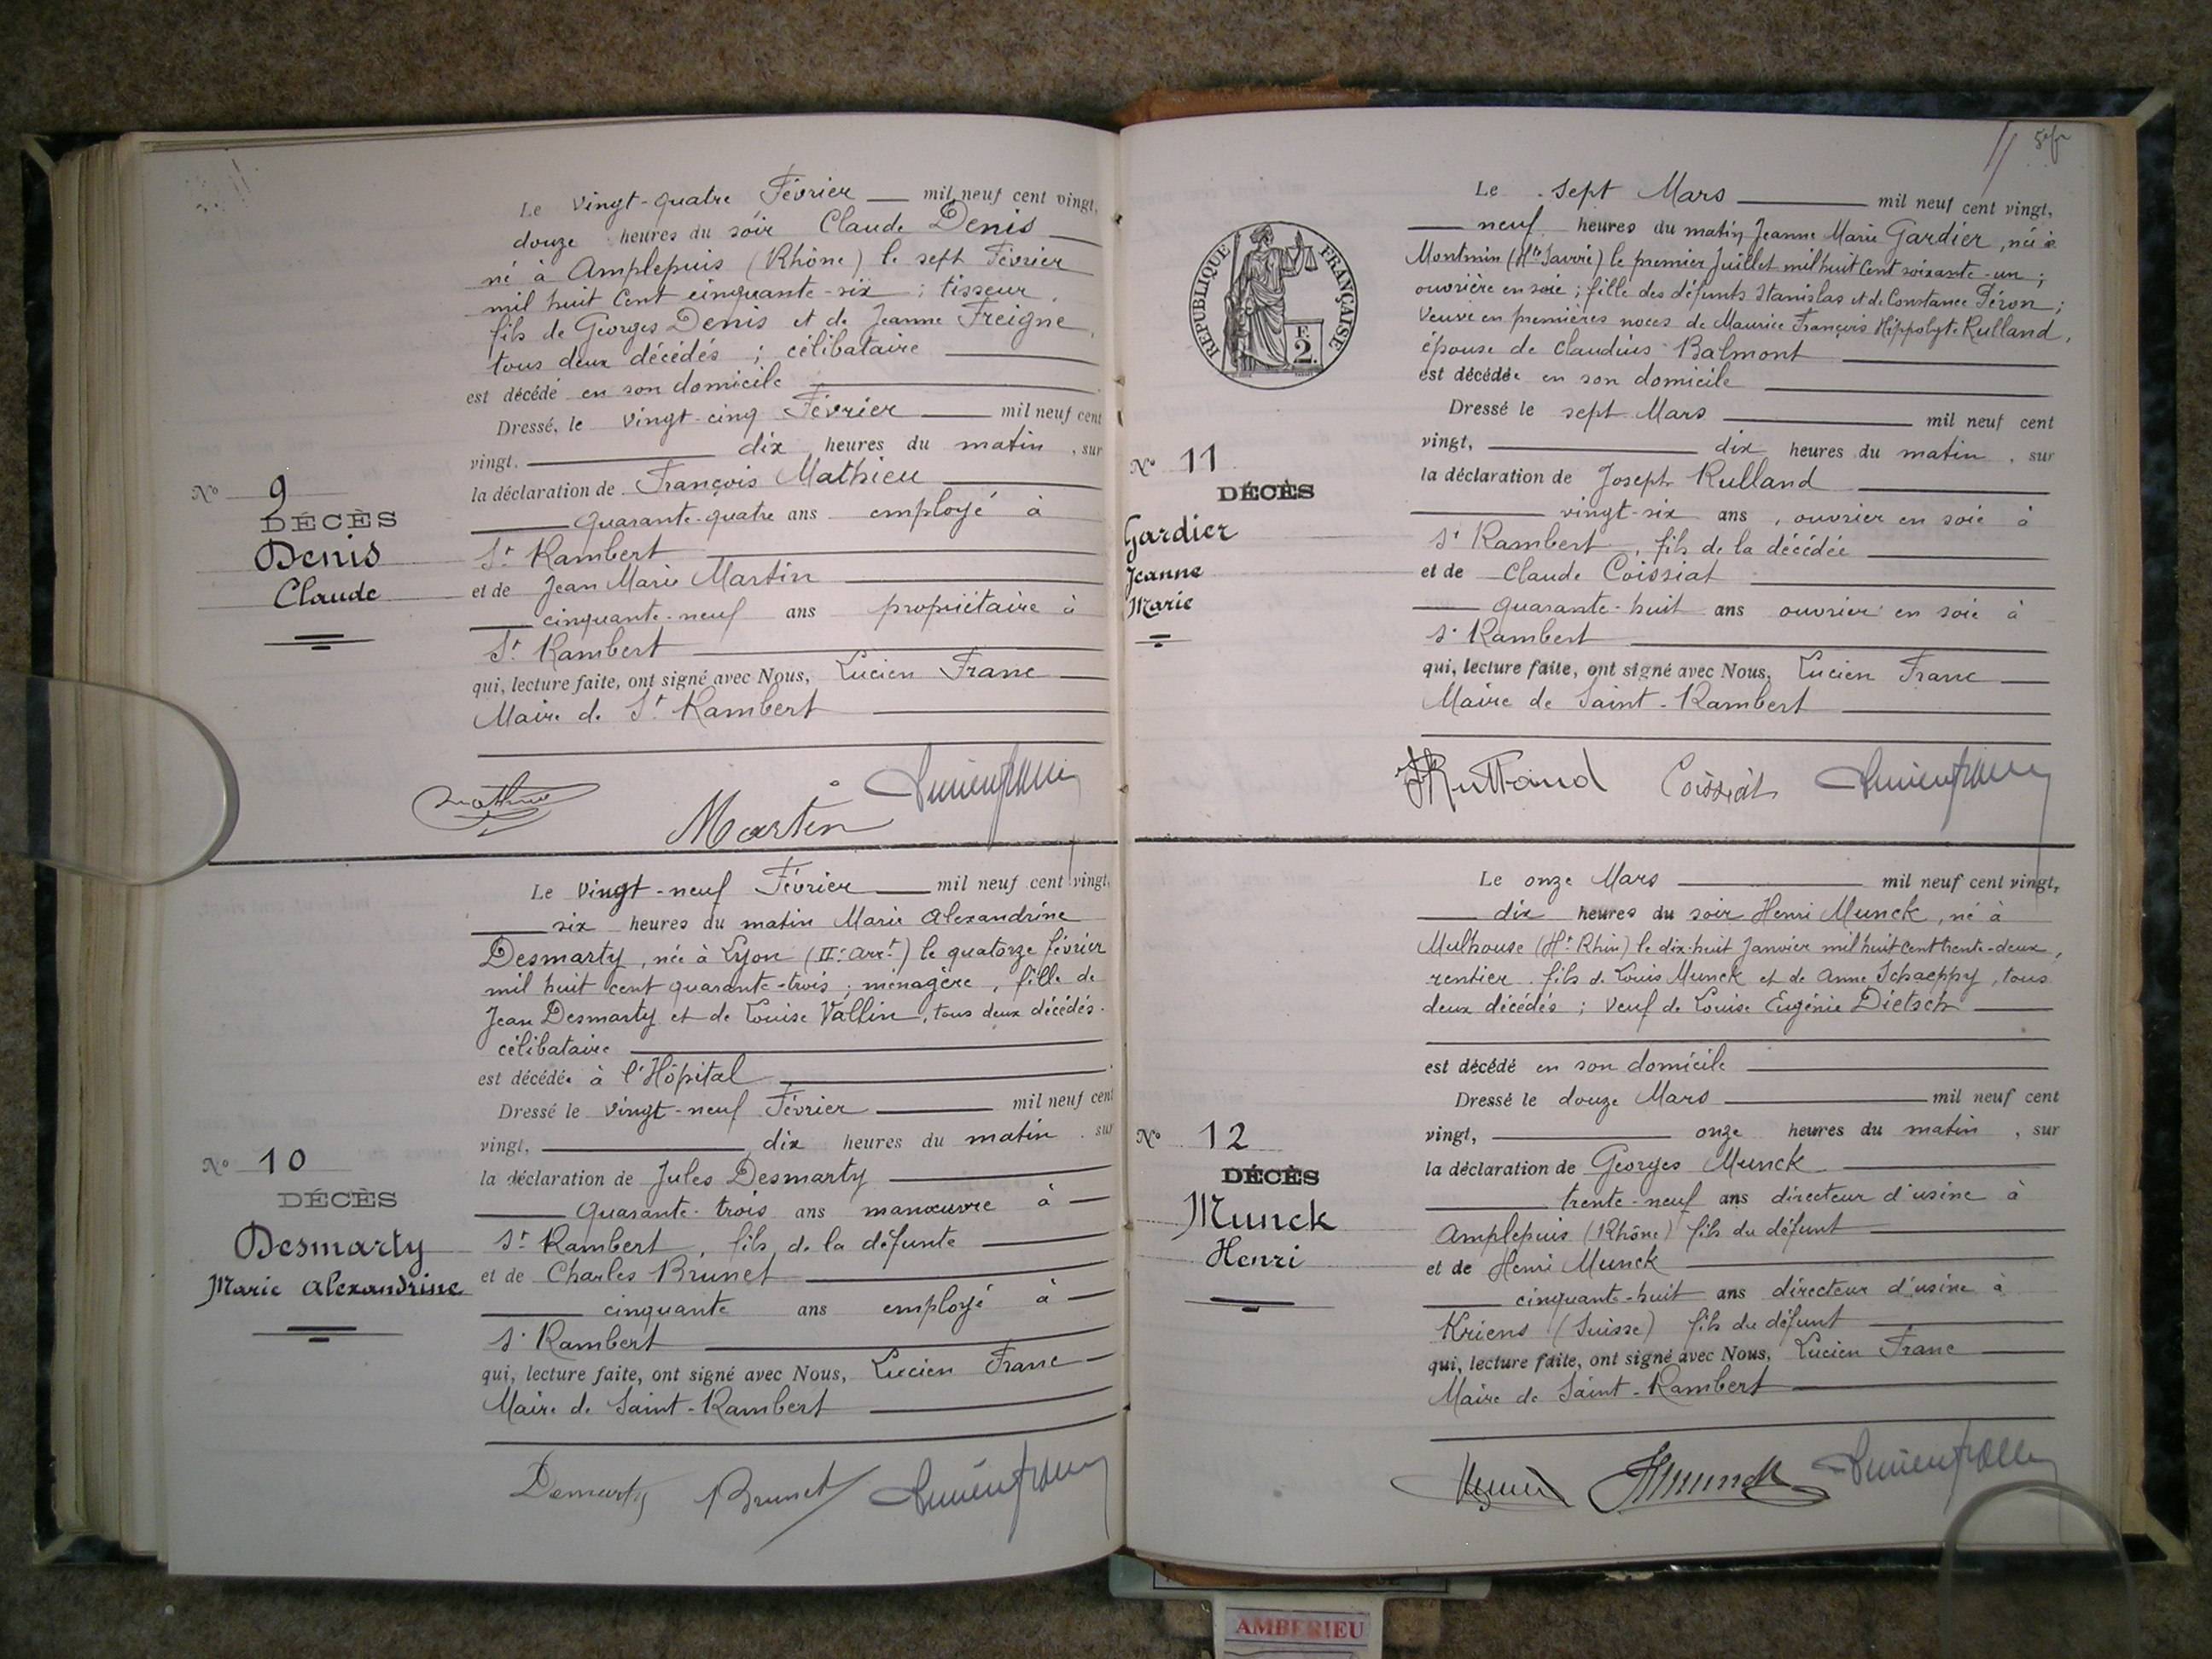 Le vingt-quatre Février mil neuf cent vingt,
douze heures du soir Claude Denis
né à Amplepuis (Rhône) le sept Février
mil huit cent cinquante-six ; tisseur
fils de Georges Denis et de Jeanne Freigne,
tous deux décédés ; célibataire
est décédé en son domicile
Dressé, le vingt-cinq Février mil neuf cent
vingt, dix heures du matin, sur
la déclaration de François Mathieu
quarante-quatre ans employé à
St Rambert
et de Jean Marie Martin
cinquante-neuf ans propriétaire à
St Rambert
qui, lecture faite, ont signé avec Nous, Lucien Franc
Maire de St Rambert
No 9
DÉCÈS
Denis
Claude
Martin
Le vingt-neuf Février mil neuf cent vingt,
six heures du matin Marie Alexandrine
Desmarty, née à Lyon (IIe arrt) le quatorze février
mil huit cent quarante-trois ; ménagère, fille de
Jean Desmarty et de Louise Vallin, tous deux décédés.
célibataire
est décédée à l'Hôpital
Dressé le vingt-neuf Février mil neuf cent
vingt, dix heures du matin, sur
la déclaration de Jules Desmarty
quarante-trois ans manœuvre à
St Rambert, fils de la défunte
et de Charles Brunet
cinquante ans employé à
St Rambert
qui, lecture faite, ont signé avec Nous, Lucien Franc
Maire de Saint-Rambert
No 10
DÉCÈS
Desmarty
Marie Alexandrine
Demarty Brunet
RÉPUBLIQUE FRANÇAISE
E
2.
Le sept Mars mil neuf cent vingt,
neuf heures du matin Jeanne Marie Gardier, née à
Montmin (Hte Savoie) le premier Juillet mil huit cent soixante-un ;
ouvrière en soie ; fille des défunts Stanislas et de Constance Féron ;
Veuve en premières noces de Maurice François Hippolyte Rulland,
épouse de Claudius Balmont
est décédée en son domicile
Dressé le sept Mars mil neuf cent
vingt, dix heures du matin, sur
la déclaration de Joseph Rulland
vingt-six ans, ouvrier en soie à
St Rambert, fils de la décédée
et de Claude Coissiat
quarante-huit ans ouvrier en soie à
St Rambert
qui, lecture faite, ont signé avec Nous, Lucien Franc
Maire de Saint-Rambert
No 11
DÉCÈS
Gardier
Jeanne
Marie
JRulland Coissiat
Le onze Mars mil neuf cent vingt,
dix heures du soir Henri Munck, né à
Mulhouse (Ht Rhin) le dix-huit Janvier mil huit cent trente-deux,
rentier, fils de Louis Munck et de Anne Schaeppy, tous
deux décédés ; veuf de Louise Eugénie Dietsch
est décédé en son domicile
Dressé le douze Mars mil neuf cent
vingt, onze heures du matin, sur
la déclaration de Georges Munck
trente-neuf ans directeur d'usine à
Amplepuis (Rhône) fils du défunt
et de Henri Munck
cinquante-huit ans directeur d'usine à
Kriens (Suisse) fils du défunt
qui, lecture faite, ont signé avec Nous, Lucien Franc
Maire de Saint-Rambert
No 12
DÉCÈS
Munck
Henri
HMunck
AMBERIEU